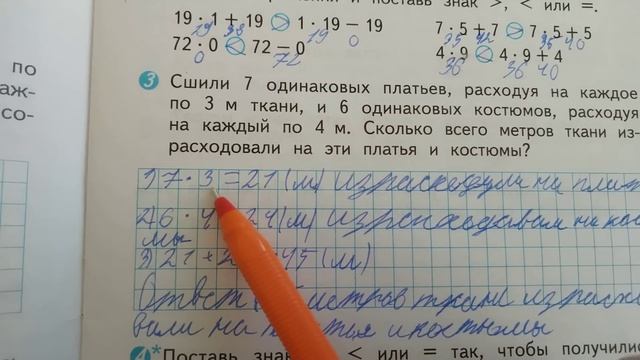 и поставь знак >, < или =.
19 · 1 + 19 > 1 · 19 − 19
19 38 19 0
7 · 5 + 7 < 7 · 5 + 5
35 42 35 40
72 · 0 < 72 − 0
0 72
4 · 9 < 4 · 9 + 4
36 36 40
по
аж-
со-
3 Сшили 7 одинаковых платьев, расходуя на каждое
по 3 м ткани, и 6 одинаковых костюмов, расходуя
на каждый по 4 м. Сколько всего метров ткани из-
расходовали на эти платья и костюмы?
1) 7 · 3 = 21 (м) израсходовали на плат
2) 6 · 4 24 (м) израсходовали на кос
мы
3) 21 + 2 45 (м)
Ответ метров ткани израсхо
вали на костюмы
4* Поставь зна < или = так, чтобы получились